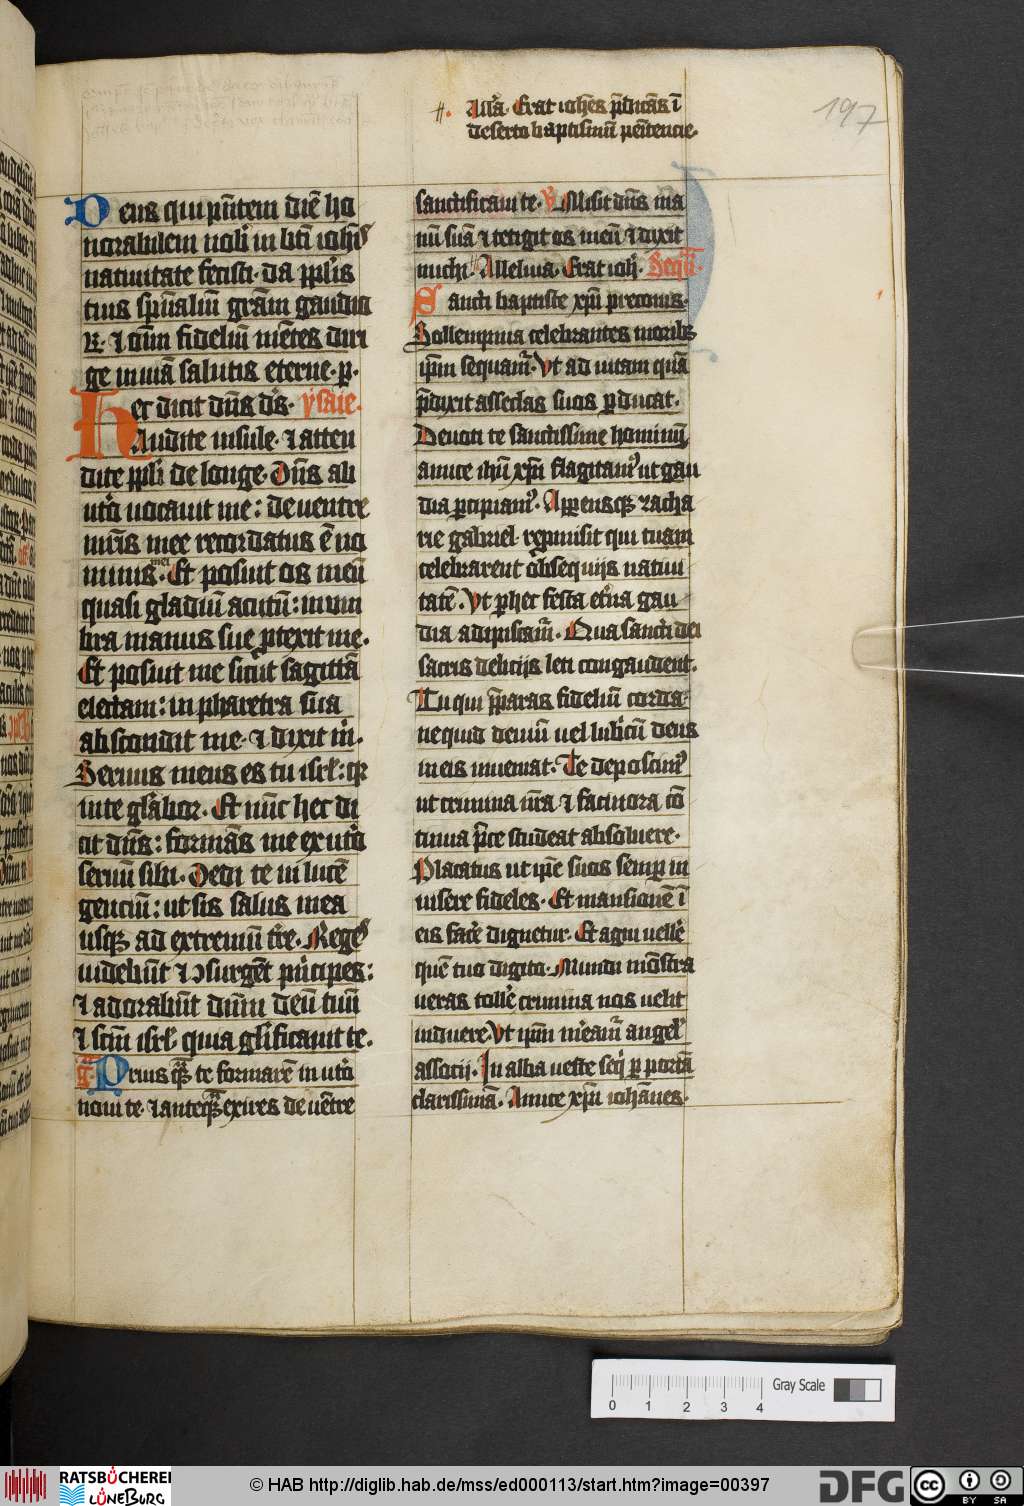 197
Alla. Erat ioh̄es p̄dicās ī
deserto baptismū penitencie.
Deus qui p̄ntem diē ho
norabilem nob̄ in bt̄i ioh̄is
natiuitate fecisti. da pp̄lis
tuis sp̄ualiū grām gaudio
ꝝ. ⁊ oīm fideliū mētes diri
ge in uiā salutis eterne. p.
Hec dicit dn̄s ds̄. ysaie.
Audite insule. ⁊ atten
dite pp̄li de longe. Dn̄s ab
utōo uocauit me: de uentre
mr̄is mee recordatus ē no
minis mei. Et posuit os meū
quasi gladiū acutū: in um
bra manus sue ꝓtexit me.
Et posuit me sicut sagittā
electam: in pharetra sua
abscondit me. ⁊ dixit m̄.
Seruus meus es tu isrl̄: qꝛ
in te gl̄abor. Et nūc hec di
cit dn̄s: formās me ex utōo
seruū sibi. Dedi te in lucē
genciū: ut sis salus mea
usqꝫ ad extremū tr̄e. Reges
uidebūt ⁊ ↄsurgēt p̄ncipes:
⁊ adorabūt dn̄m deū tuū
⁊ scm̄ isrl̄ quia gl̄ificauit te.
g̃. Prius qꝫ te formarē in utōo
noui te. ⁊ anteqꝫ exires de uētre
sanctificaui te. V̄. Misit dn̄s ma
nū suā ⁊ tetigit os meū ⁊ dixit
michi. Alleluia. Erat ioh̄. Seq̄u.
Sancti baptiste xp̄i preconis.
Sollempnia celebrantes moribꝫ
ip̄m sequamr̄. Vt ad uitam quā
p̄dixit asseclas suos ꝑducat.
Deuoti te sanctissime hominū,
amice ih̄u xp̄i flagitamꝰ ut gau
dia ꝑcipiamꝰ. Apparensqꝫ zacha
rie gabriel repmisit qui tuam
celebrarent obsequijs natiui
tatē. Vt ꝑ hec festa et̄na gau
dia adipiscam̄. Qua sancti dei
sacris delicijs leti congaudent.
Tu qui p̄paras fideliū corda.
ne quid deuiū uel lubⁱcū deus
in eis inueniat. Te deposcimꝰ
ut crimina n̄ra ⁊ facinora cō
tinua p̄ce studeat absoluere.
Placatus ut ip̄e suos semꝑ in
uisere fideles. Et mansionē ī
eis facˀe dignetur. Et agni uellˀe
quē tuo digito. Mundi mōstra
ueras tollˀe crimina nos uelit
induere. Vt ip̄m mˀeamr̄ angelˀ
associj. In alba ueste seqⁱ ꝑ portā
clarissimā. Amice xp̄i iohānes.
Gray Scale
0 1 2 3 4
RATSBÜCHEREI
LÜNEBURG
© HAB http://diglib.hab.de/mss/ed000113/start.htm?image=00397
DFG
cc BY SA